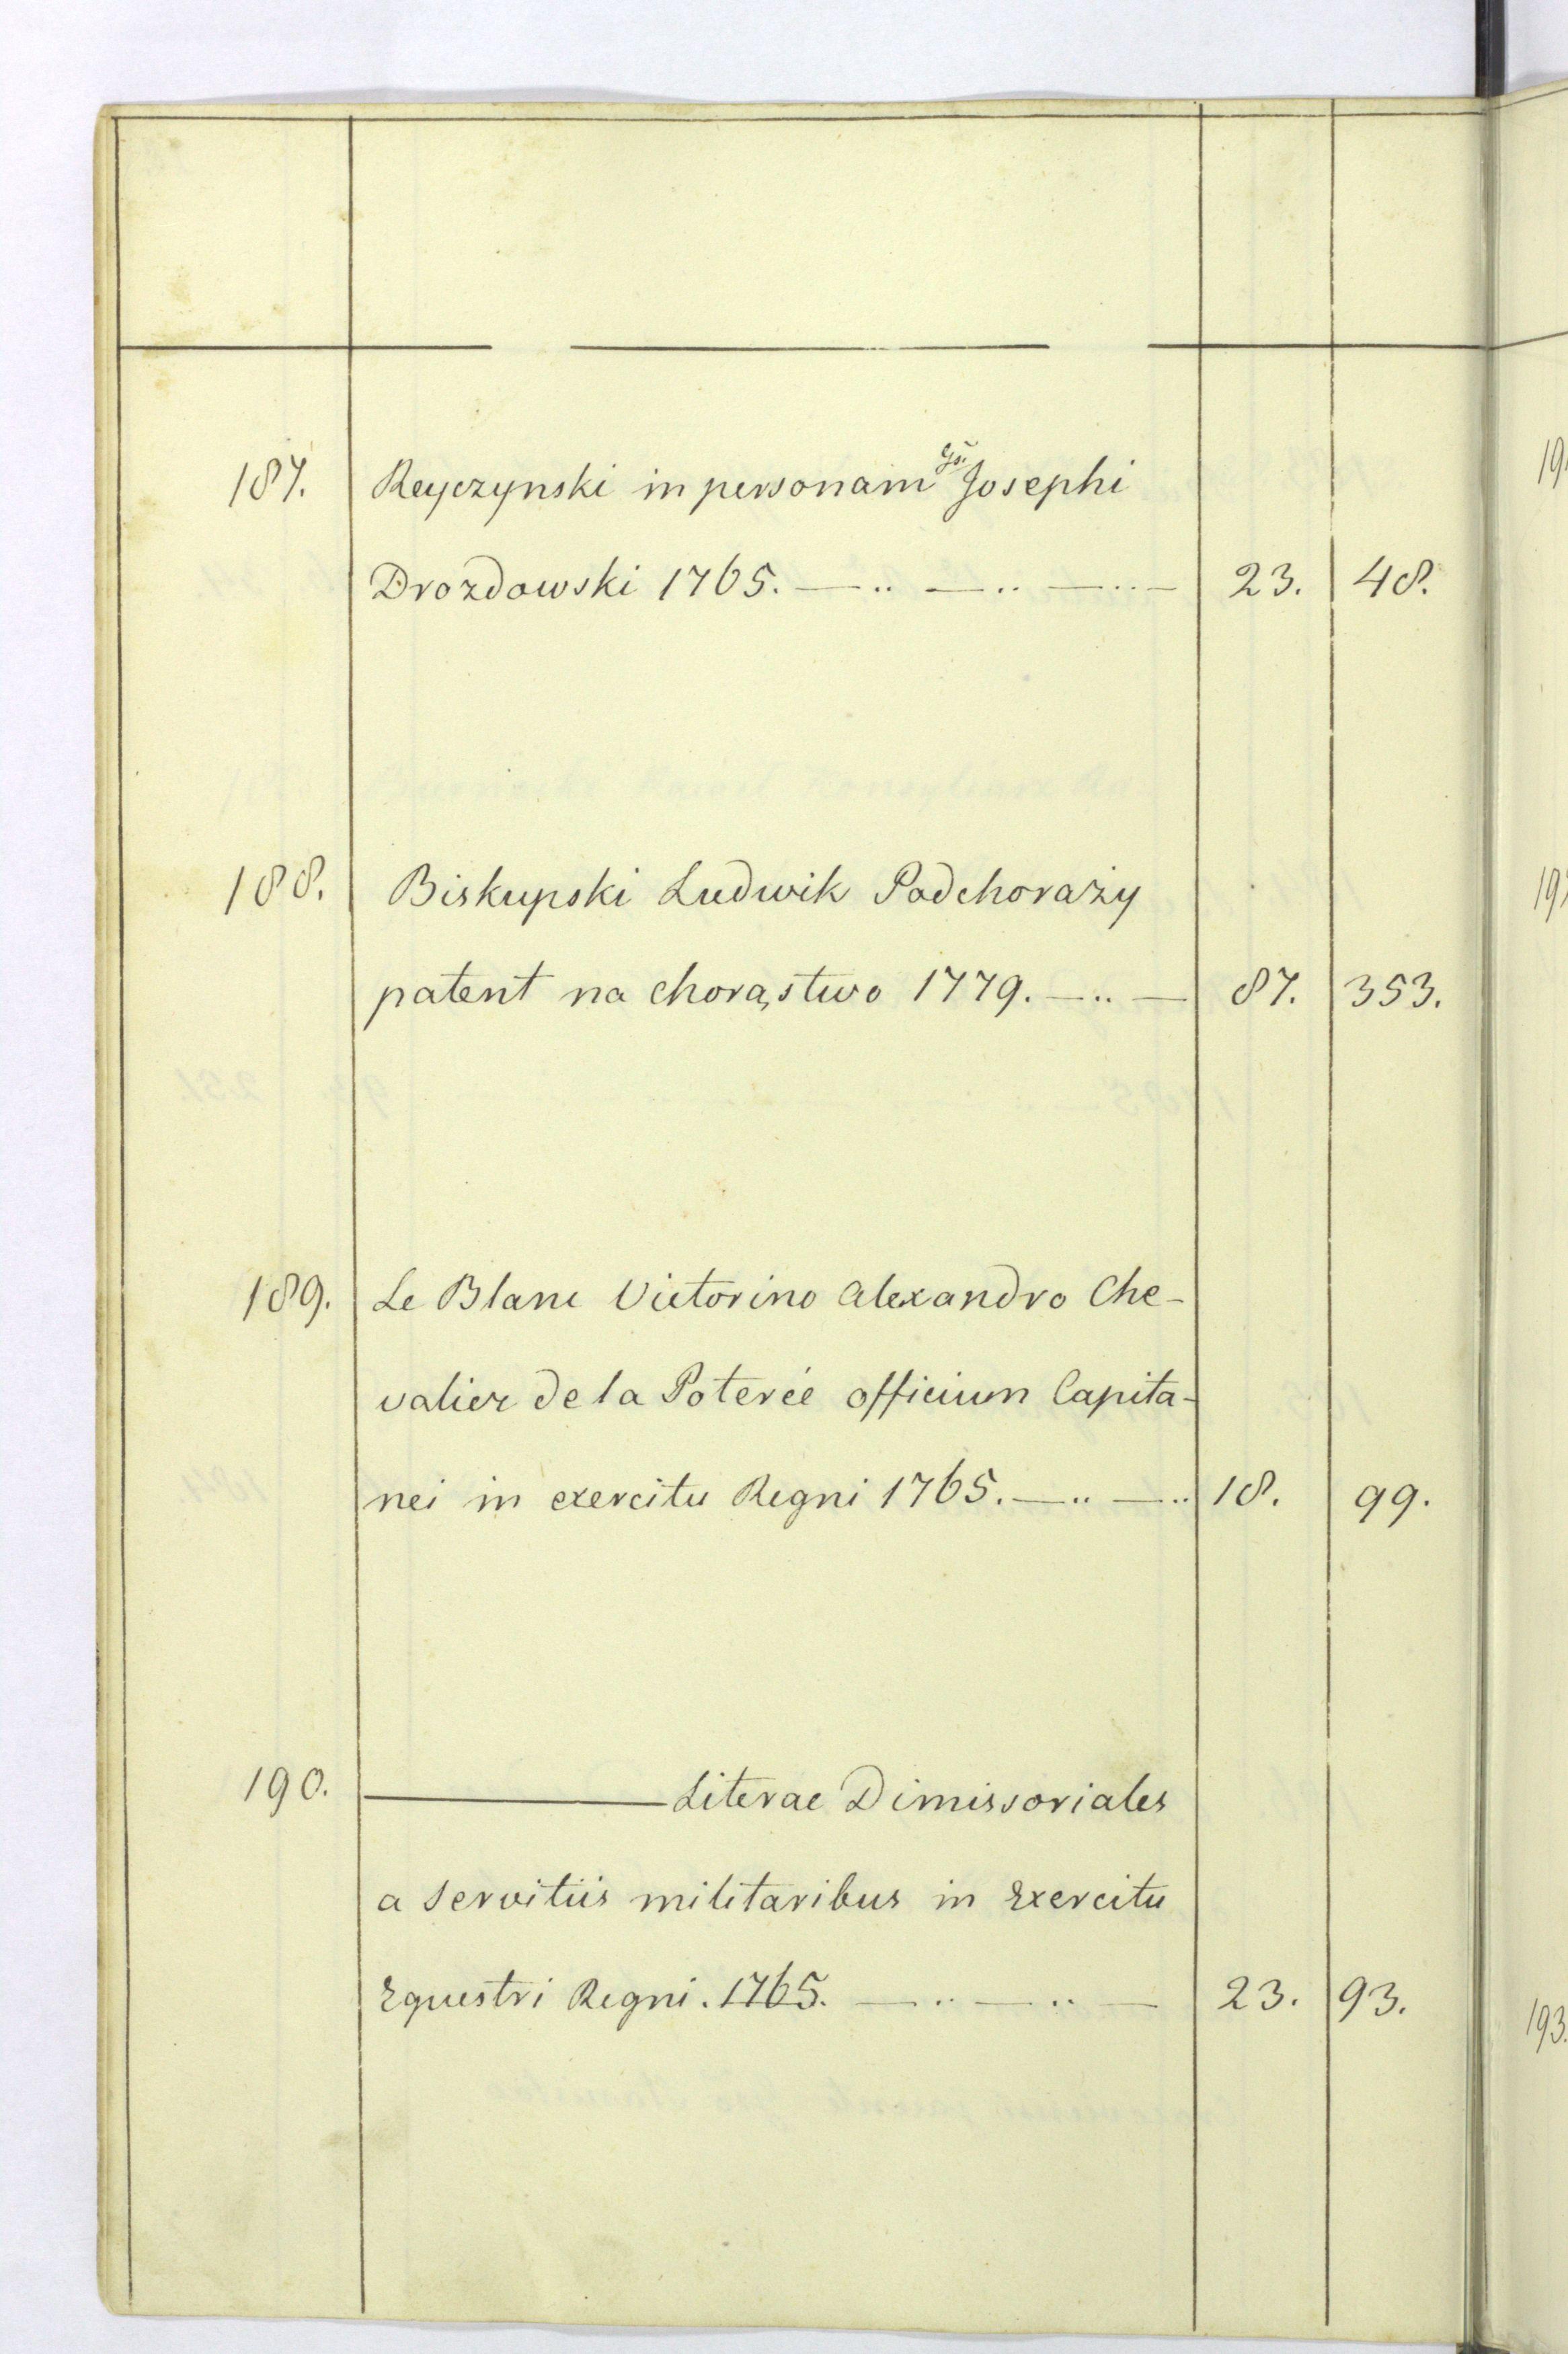 187. Reyczynski in personam Gsi. Josephi
Drozdowski 1765. —.. —.. —..— 23. 48.
188. Biskupski Ludwik Podchorąży
patent na chorąstwo 1779. —.. — 87. 353.
189. Le Blanc Victorino Alexandro Che-
valier de la Poterée officium Capita-
nei in exercitu Regni 1765. —.. —.. 18. 99.
190. ——— Literae Dimissoriales
a servitiis militaribus in Exercitu
Equestri Regni. 1765. —..—..— 23. 93.
193.